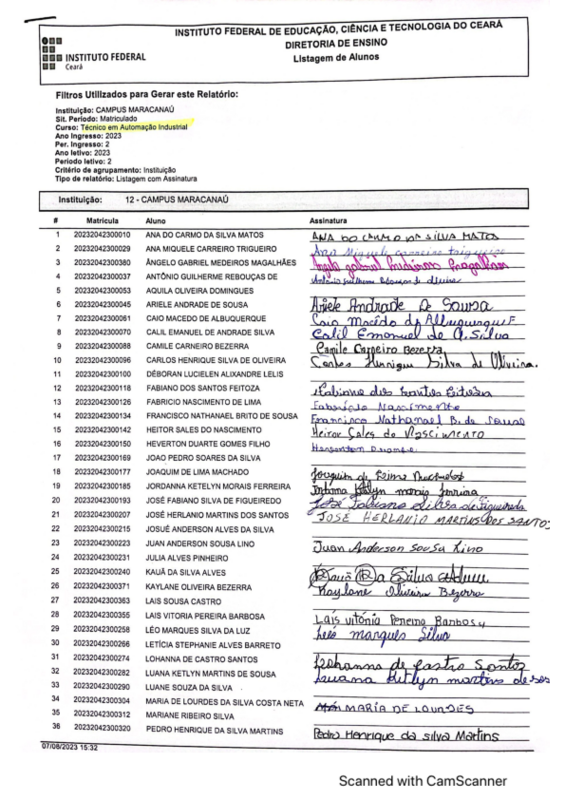 INSTITUTO FEDERAL DE EDUCAÇÃO, CIÊNCIA E TECNOLOGIA DO CEARÁ
DIRETORIA DE ENSINO
Listagem de Alunos
INSTITUTO FEDERAL
Ceará
Filtros Utilizados para Gerar este Relatório:
Instituição: CAMPUS MARACANAÚ
Sit. Período: Matriculado
Curso: Técnico em Automação Industrial
Ano Ingresso: 2023
Per. Ingresso: 2
Ano letivo: 2023
Período letivo: 2
Critério de agrupamento: Instituição
Tipo de relatório: Listagem com Assinatura
Instituição: 12 - CAMPUS MARACANAÚ
# Matrícula Aluno Assinatura
1 20232042300010 ANA DO CARMO DA SILVA MATOS ANA DO CARMO DA SILVA MATOS
2 20232042300029 ANA MIQUELE CARREIRO TRIGUEIRO Ana Miquele carreiro trigueiro
3 20232042300380 ÂNGELO GABRIEL MEDEIROS MAGALHÃES gabriel Medeiros Magalhães
4 20232042300037 ANTÔNIO GUILHERME REBOUÇAS DE Antônio guilherme Rebouças de oliveira
5 20232042300053 AQUILA OLIVEIRA DOMINGUES
6 20232042300045 ARIELE ANDRADE DE SOUSA Ariele Andrade De Sousa
7 20232042300061 CAIO MACEDO DE ALBUQUERQUE Caio Macêdo de Albuquerque F
8 20232042300070 CALIL EMANUEL DE ANDRADE SILVA Calil Emanuel de A. Silva
9 20232042300088 CAMILE CARNEIRO BEZERRA Camile Carneiro Bezerra
10 20232042300096 CARLOS HENRIQUE SILVA DE OLIVEIRA Carlos Henrique Silva de Oliveira.
11 20232042300100 DÉBORAN LUCIELEN ALIXANDRE LELIS
12 20232042300118 FABIANO DOS SANTOS FEITOZA Fabiano dos Santos Feitoza
13 20232042300126 FABRICIO NASCIMENTO DE LIMA Fabrício Nascimento
14 20232042300134 FRANCISCO NATHANAEL BRITO DE SOUSA Francisco Nathanael B. de Sousa
15 20232042300142 HEITOR SALES DO NASCIMENTO Heitor Sales do Nascimento
16 20232042300150 HEVERTON DUARTE GOMES FILHO Heverton Duarte
17 20232042300169 JOAO PEDRO SOARES DA SILVA
18 20232042300177 JOAQUIM DE LIMA MACHADO Joaquim de Lima Machado
19 20232042300185 JORDANNA KETELYN MORAIS FERREIRA morais ferreira
20 20232042300193 JOSÉ FABIANO SILVA DE FIGUEIREDO José Fabiano Silva de Figueiredo
21 20232042300207 JOSÉ HERLANIO MARTINS DOS SANTOS JOSÉ HERLANIO MARTINS DOS SANTOS
22 20232042300215 JOSUÉ ANDERSON ALVES DA SILVA
23 20232042300223 JUAN ANDERSON SOUSA LINO Juan Anderson Sousa Lino
24 20232042300231 JULIA ALVES PINHEIRO
25 20232042300240 KAUÃ DA SILVA ALVES Kauã Da Silva Alves
26 20232042300371 KAYLANE OLIVEIRA BEZERRA Kaylane Oliveira Bezerra
27 20232042300363 LAIS SOUSA CASTRO
28 20232042300355 LAIS VITORIA PEREIRA BARBOSA Laís vitória Pereira Barbosa
29 20232042300258 LÉO MARQUES SILVA DA LUZ Léo marques Silva
30 20232042300266 LETÍCIA STEPHANIE ALVES BARRETO
31 20232042300274 LOHANNA DE CASTRO SANTOS Lohanna de Castro Santos
32 20232042300282 LUANA KETLYN MARTINS DE SOUSA Luana Ketlyn martins de
33 20232042300290 LUANE SOUZA DA SILVA
34 20232042300304 MARIA DE LOURDES DA SILVA COSTA NETA MARÍA DE LOURDES
35 20232042300312 MARIANE RIBEIRO SILVA
36 20232042300320 PEDRO HENRIQUE DA SILVA MARTINS Pedro Henrique da silva Martins
07/08/2023 15:32
Scanned with CamScanner